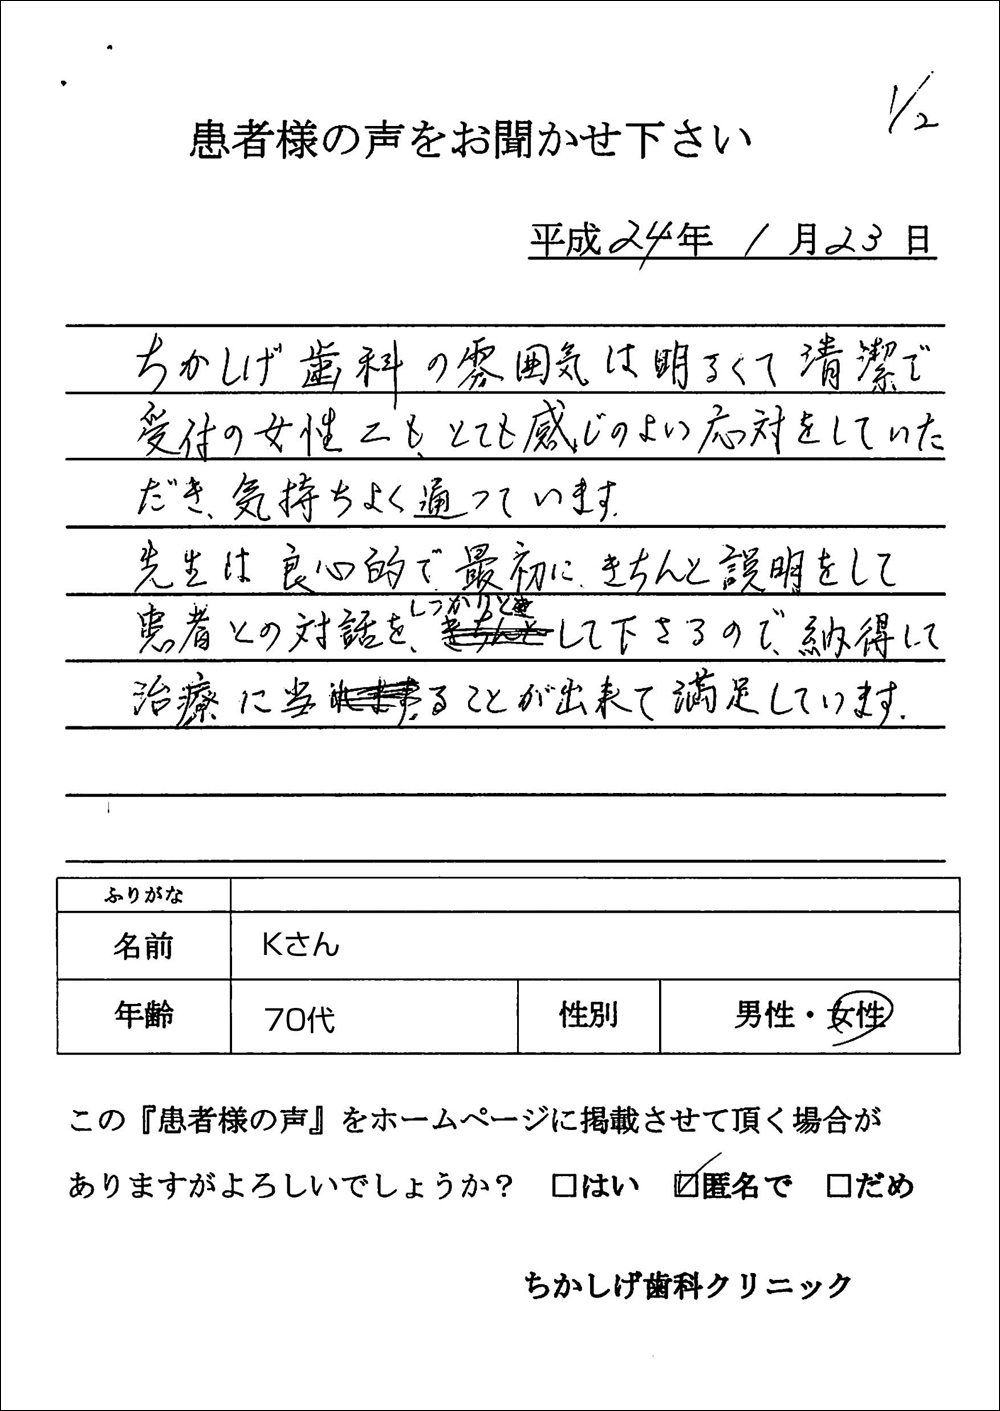 1/2
患者様の声をお聞かせ下さい
平成24年 1月23日
ちかしげ歯科の雰囲気は明るくて清潔で
受付の女性二も、とても感じのよい応対をしていた
だき、気持ちよく通っています.
先生は良心的で、最初に、きちんと説明をして
しっかりと
患者との対話を、して下さるので、納得して
治療に当ることが出来て満足しています.
ふりがな
名前 Kさん
年齢 70代 性別 男性・女性
この『患者様の声』をホームページに掲載させて頂く場合が
ありますがよろしいでしょうか? □はい ☑匿名で □だめ
ちかしげ歯科クリニック